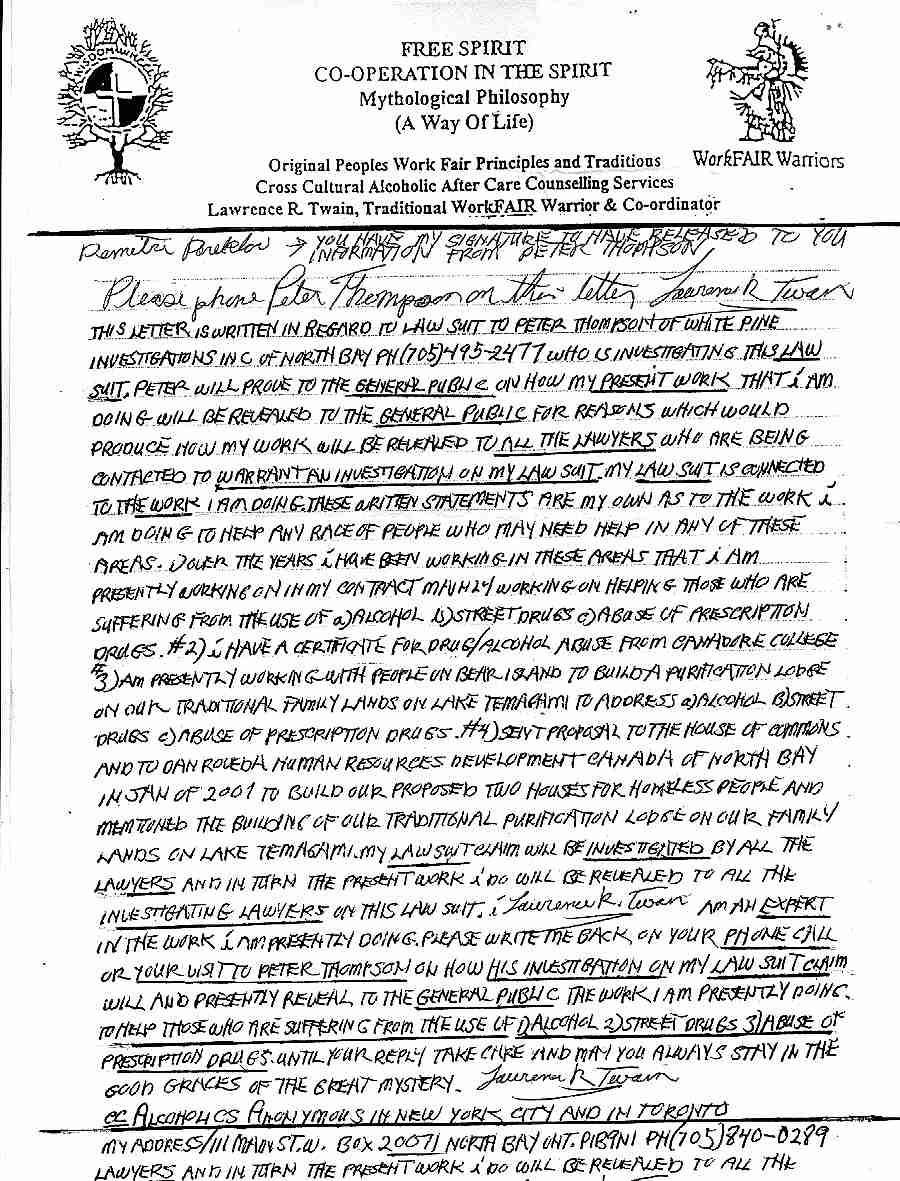 WISDOM WHEEL
FREE SPIRIT
CO-OPERATION IN THE SPIRIT
Mythological Philosophy
(A Way Of Life)
Original Peoples Work Fair Principles and Traditions
WorkFAIR Warriors
Cross Cultural Alcoholic After Care Counselling Services
Lawrence R. Twain, Traditional WorkFAIR Warrior & Co-ordinator
→ YOU HAVE MY SIGNATURE TO HAVE RELEASED TO YOU
INFORMATION FROM PETER THOMPSON
Please phone Peter Thompson on this letter Laurence R Twain
THIS LETTER IS WRITTEN IN REGARD TO LAW SUIT TO PETER THOMPSON OF WHITE PINE
INVESTIGATIONS INC OF NORTH BAY PH (705) 495-2477 WHO IS INVESTIGATING THIS LAW
SUIT. PETER WILL PROVE TO THE GENERAL PUBLIC ON HOW MY PRESENT WORK THAT i AM
DOING WILL BE REVEALED TO THE GENERAL PUBLIC FOR REASONS WHICH WOULD
PRODUCE HOW MY WORK WILL BE REVEALED TO ALL THE LAWYERS WHO ARE BEING
CONTACTED TO WARRANT AN INVESTIGATION ON MY LAW SUIT. MY LAW SUIT IS CONNECTED
TO THE WORK I AM DOING. THESE WRITTEN STATEMENTS ARE MY OWN AS TO THE WORK i
AM DOING TO HELP ANY RACE OF PEOPLE WHO MAY NEED HELP IN ANY OF THESE
AREAS. 1) OVER THE YEARS i HAVE BEEN WORKING IN THESE AREAS THAT i AM
PRESENTLY WORKING ON IN MY CONTRACT MAINLY WORKING ON HELPING THOSE WHO ARE
SUFFERING FROM THE USE OF a) ALCOHOL b) STREET DRUGS c) ABUSE OF PRESCRIPTION
DRUGS. #2) i HAVE A CERTIFICATE FOR DRUG/ALCOHOL ABUSE FROM CANADORE COLLEGE
#3) AM PRESENTLY WORKING WITH PEOPLE ON BEAR ISLAND TO BUILD A PURIFICATION LODGE
ON OUR TRADITIONAL FAMILY LANDS ON LAKE TEMAGAMI TO ADDRESS a) ALCOHOL B) STREET
DRUGS c) ABUSE OF PRESCRIPTION DRUGS. #4) SENT PROPOSAL TO THE HOUSE OF COMMONS
AND TO DAN ROVEDA HUMAN RESOURCES DEVELOPMENT CANADA OF NORTH BAY
IN JAN OF 2001 TO BUILD OUR PROPOSED TWO HOUSES FOR HOMELESS PEOPLE AND
MENTIONED THE BUILDING OF OUR TRADITIONAL PURIFICATION LODGE ON OUR FAMILY
LANDS ON LAKE TEMAGAMI. MY LAW SUIT CLAIM WILL BE INVESTIGATED BY ALL THE
LAWYERS AND IN TURN THE PRESENT WORK i DO WILL BE REVEALED TO ALL THE
INVESTIGATING LAWYERS ON THIS LAW SUIT. i Laurence R. Twain AM AN EXPERT
IN THE WORK i AM PRESENTLY DOING. PLEASE WRITE ME BACK ON YOUR PHONE CALL
OR YOUR VISIT TO PETER THOMPSON ON HOW HIS INVESTIGATION ON MY LAW SUIT CLAIM
WILL AND PRESENTLY REVEAL TO THE GENERAL PUBLIC THE WORK I AM PRESENTLY DOING.
TO HELP THOSE WHO ARE SUFFERING FROM THE USE OF 1) ALCOHOL 2) STREET DRUGS 3) ABUSE OF
PRESCRIPTION DRUGS. UNTIL YOUR REPLY TAKE CARE AND MAY YOU ALWAYS STAY IN THE
GOOD GRACES OF THE GREAT MYSTERY. Laurence R Twain
CC ALCOHOLICS ANONYMOUS IN NEW YORK CITY AND IN TORONTO
MY ADDRESS/111 MAIN ST. W. BOX 20071 NORTH BAY ONT. P1B9N1 PH (705) 840-0289
LAWYERS AND IN TURN THE PRESENT WORK i DO WILL BE REVEALED TO ALL THE